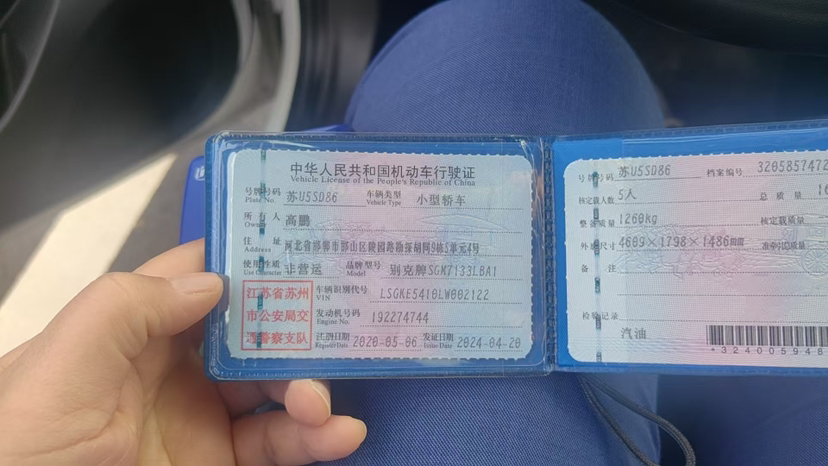 中华人民共和国机动车行驶证
Vehicle License of the People's Republic of China
号牌号码 Plate No. 苏U5SD86 车辆类型 Vehicle Type 小型轿车
所有人 Owner 高鹏
住址 Address 河北省邯郸市邯山区陵园路勘探胡同9栋5单元4号
使用性质 Use Character 非营运 品牌型号 Model 别克牌SGM7133LBA1
江苏省苏州
市公安局交
通警察支队
车辆识别代号 VIN LSGKE5410LW002122
发动机号码 Engine No. 192274744
注册日期 Register Date 2020-05-06 发证日期 Issue Date 2024-04-20
号牌号码 苏U5SD86 档案编号 3205857472
核定载人数 5人 总质量
整备质量 1260kg 核定载质量
外廓尺寸 4609×1798×1486mm 准牵引总质量
备注
检验记录
汽油
*324005948